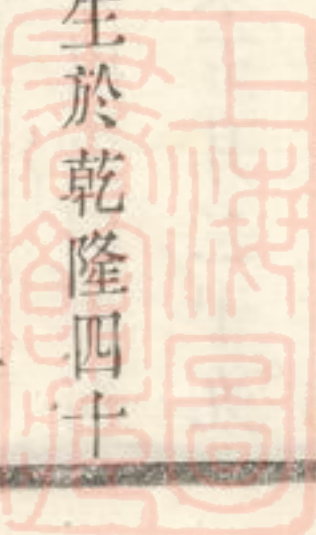 生於乾隆四十
上海圖
書館藏